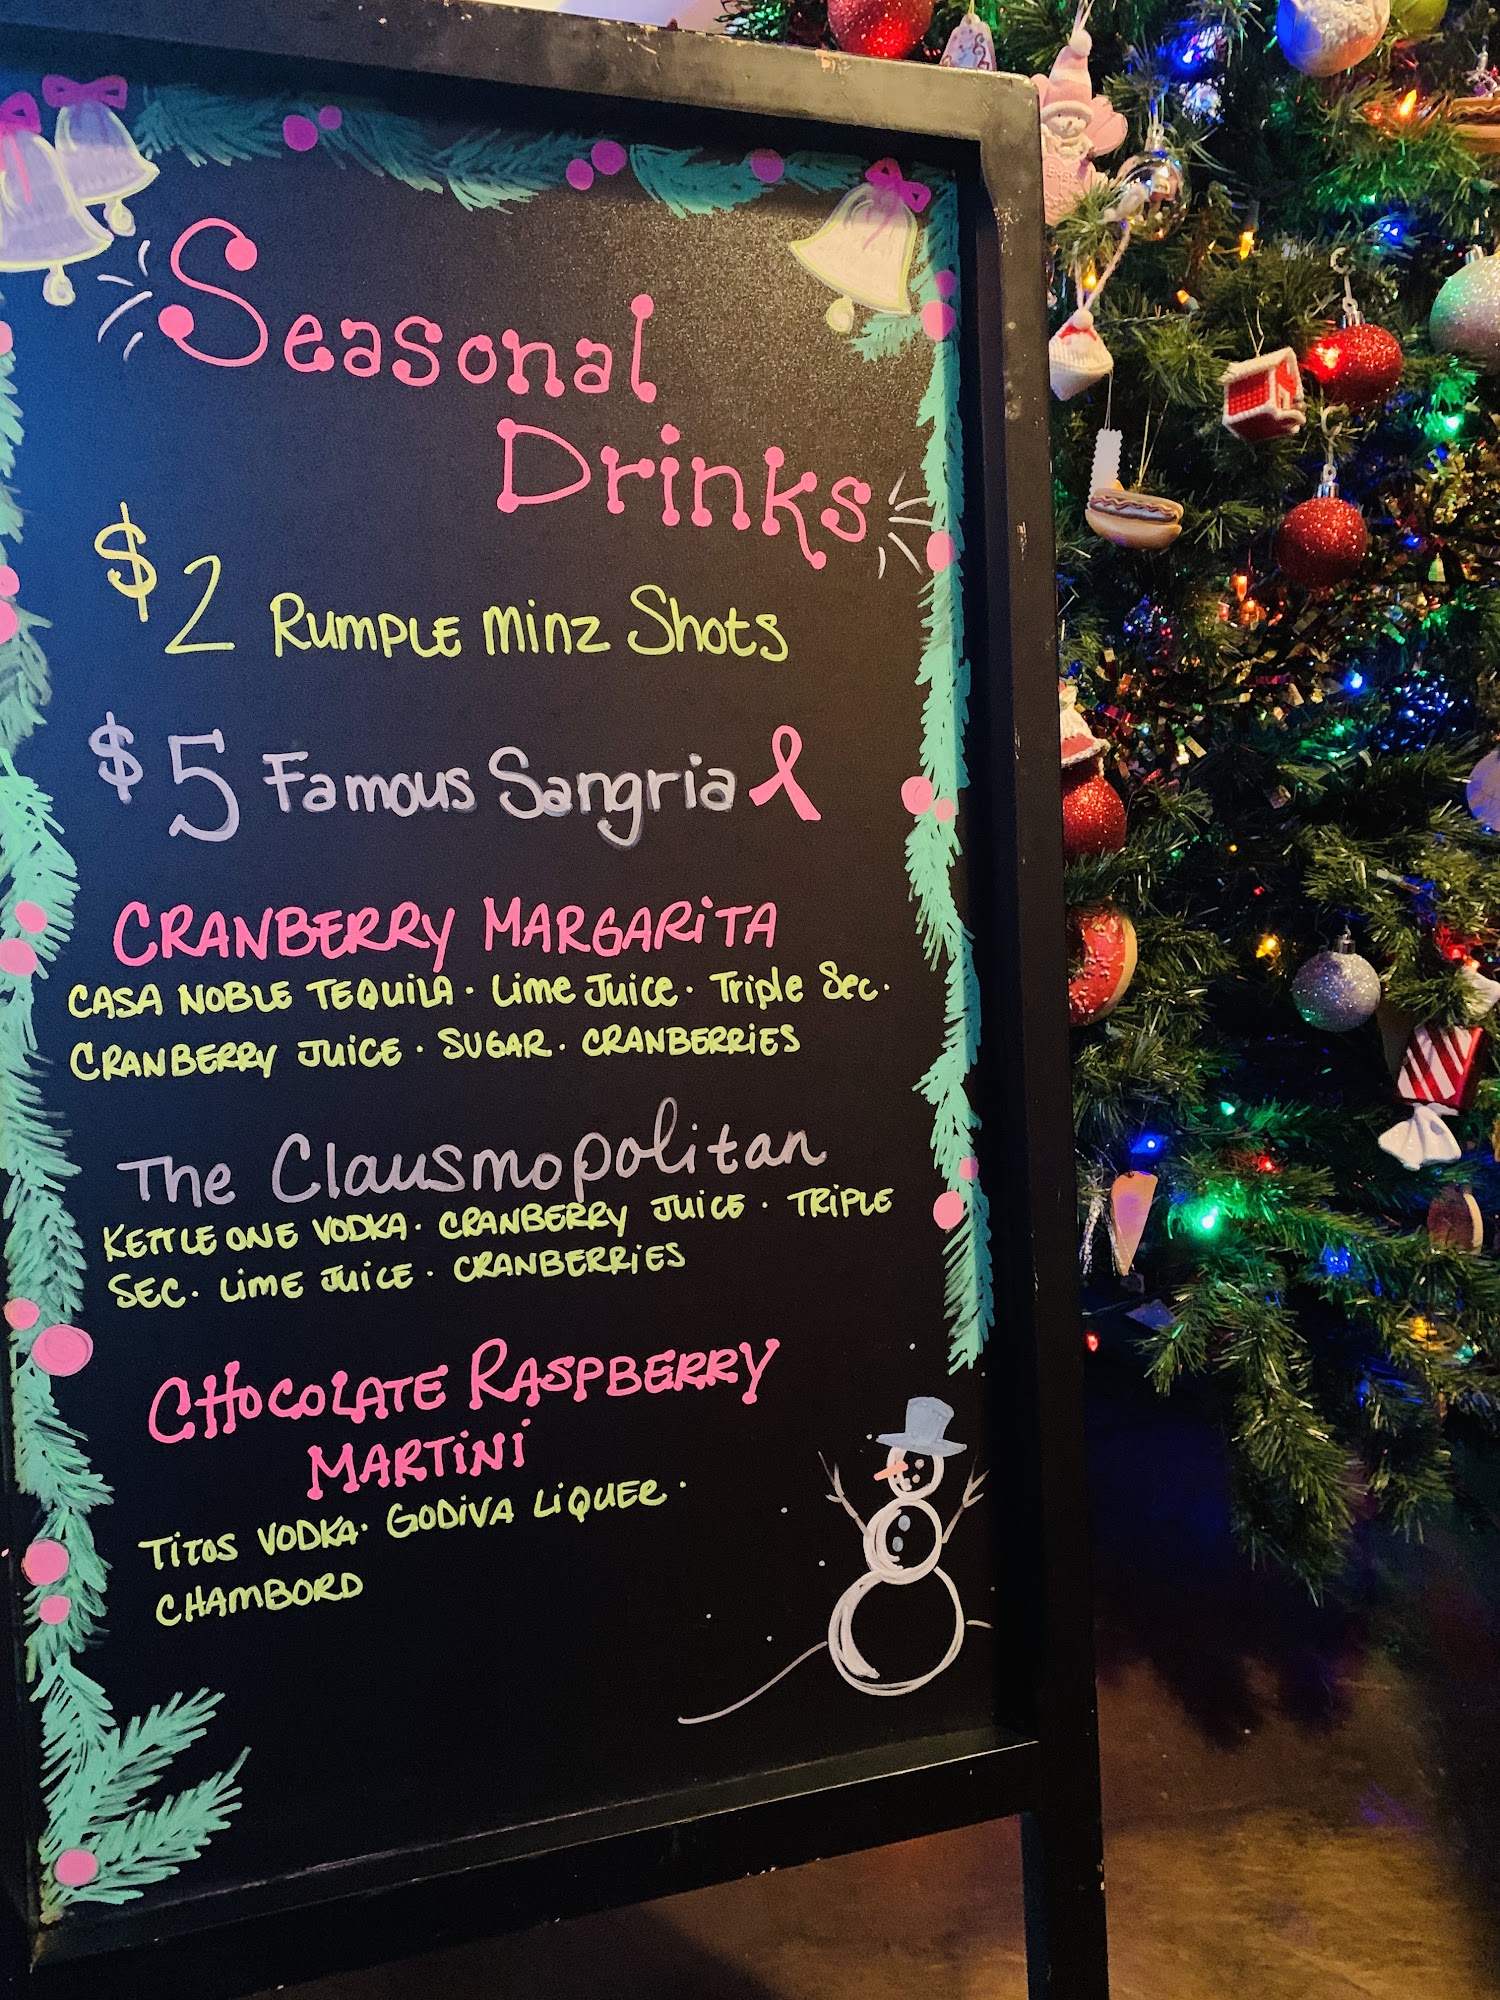 Seasonal
Drinks
$2 Rumple Minz Shots
$5 Famous Sangria
CRANBERRY MARGARITA
CASA NOBLE TEQUILA · Lime Juice · Triple Sec ·
CRANBERRY JUICE · SUGAR · CRANBERRIES
The Clausmopolitan
KETTLE ONE VODKA · CRANBERRY JUICE · TRIPLE
SEC · LIME JUICE · CRANBERRIES
CHOCOLATE RASPBERRY
MARTINI
TITOS VODKA · GODIVA LIQUER ·
CHAMBORD